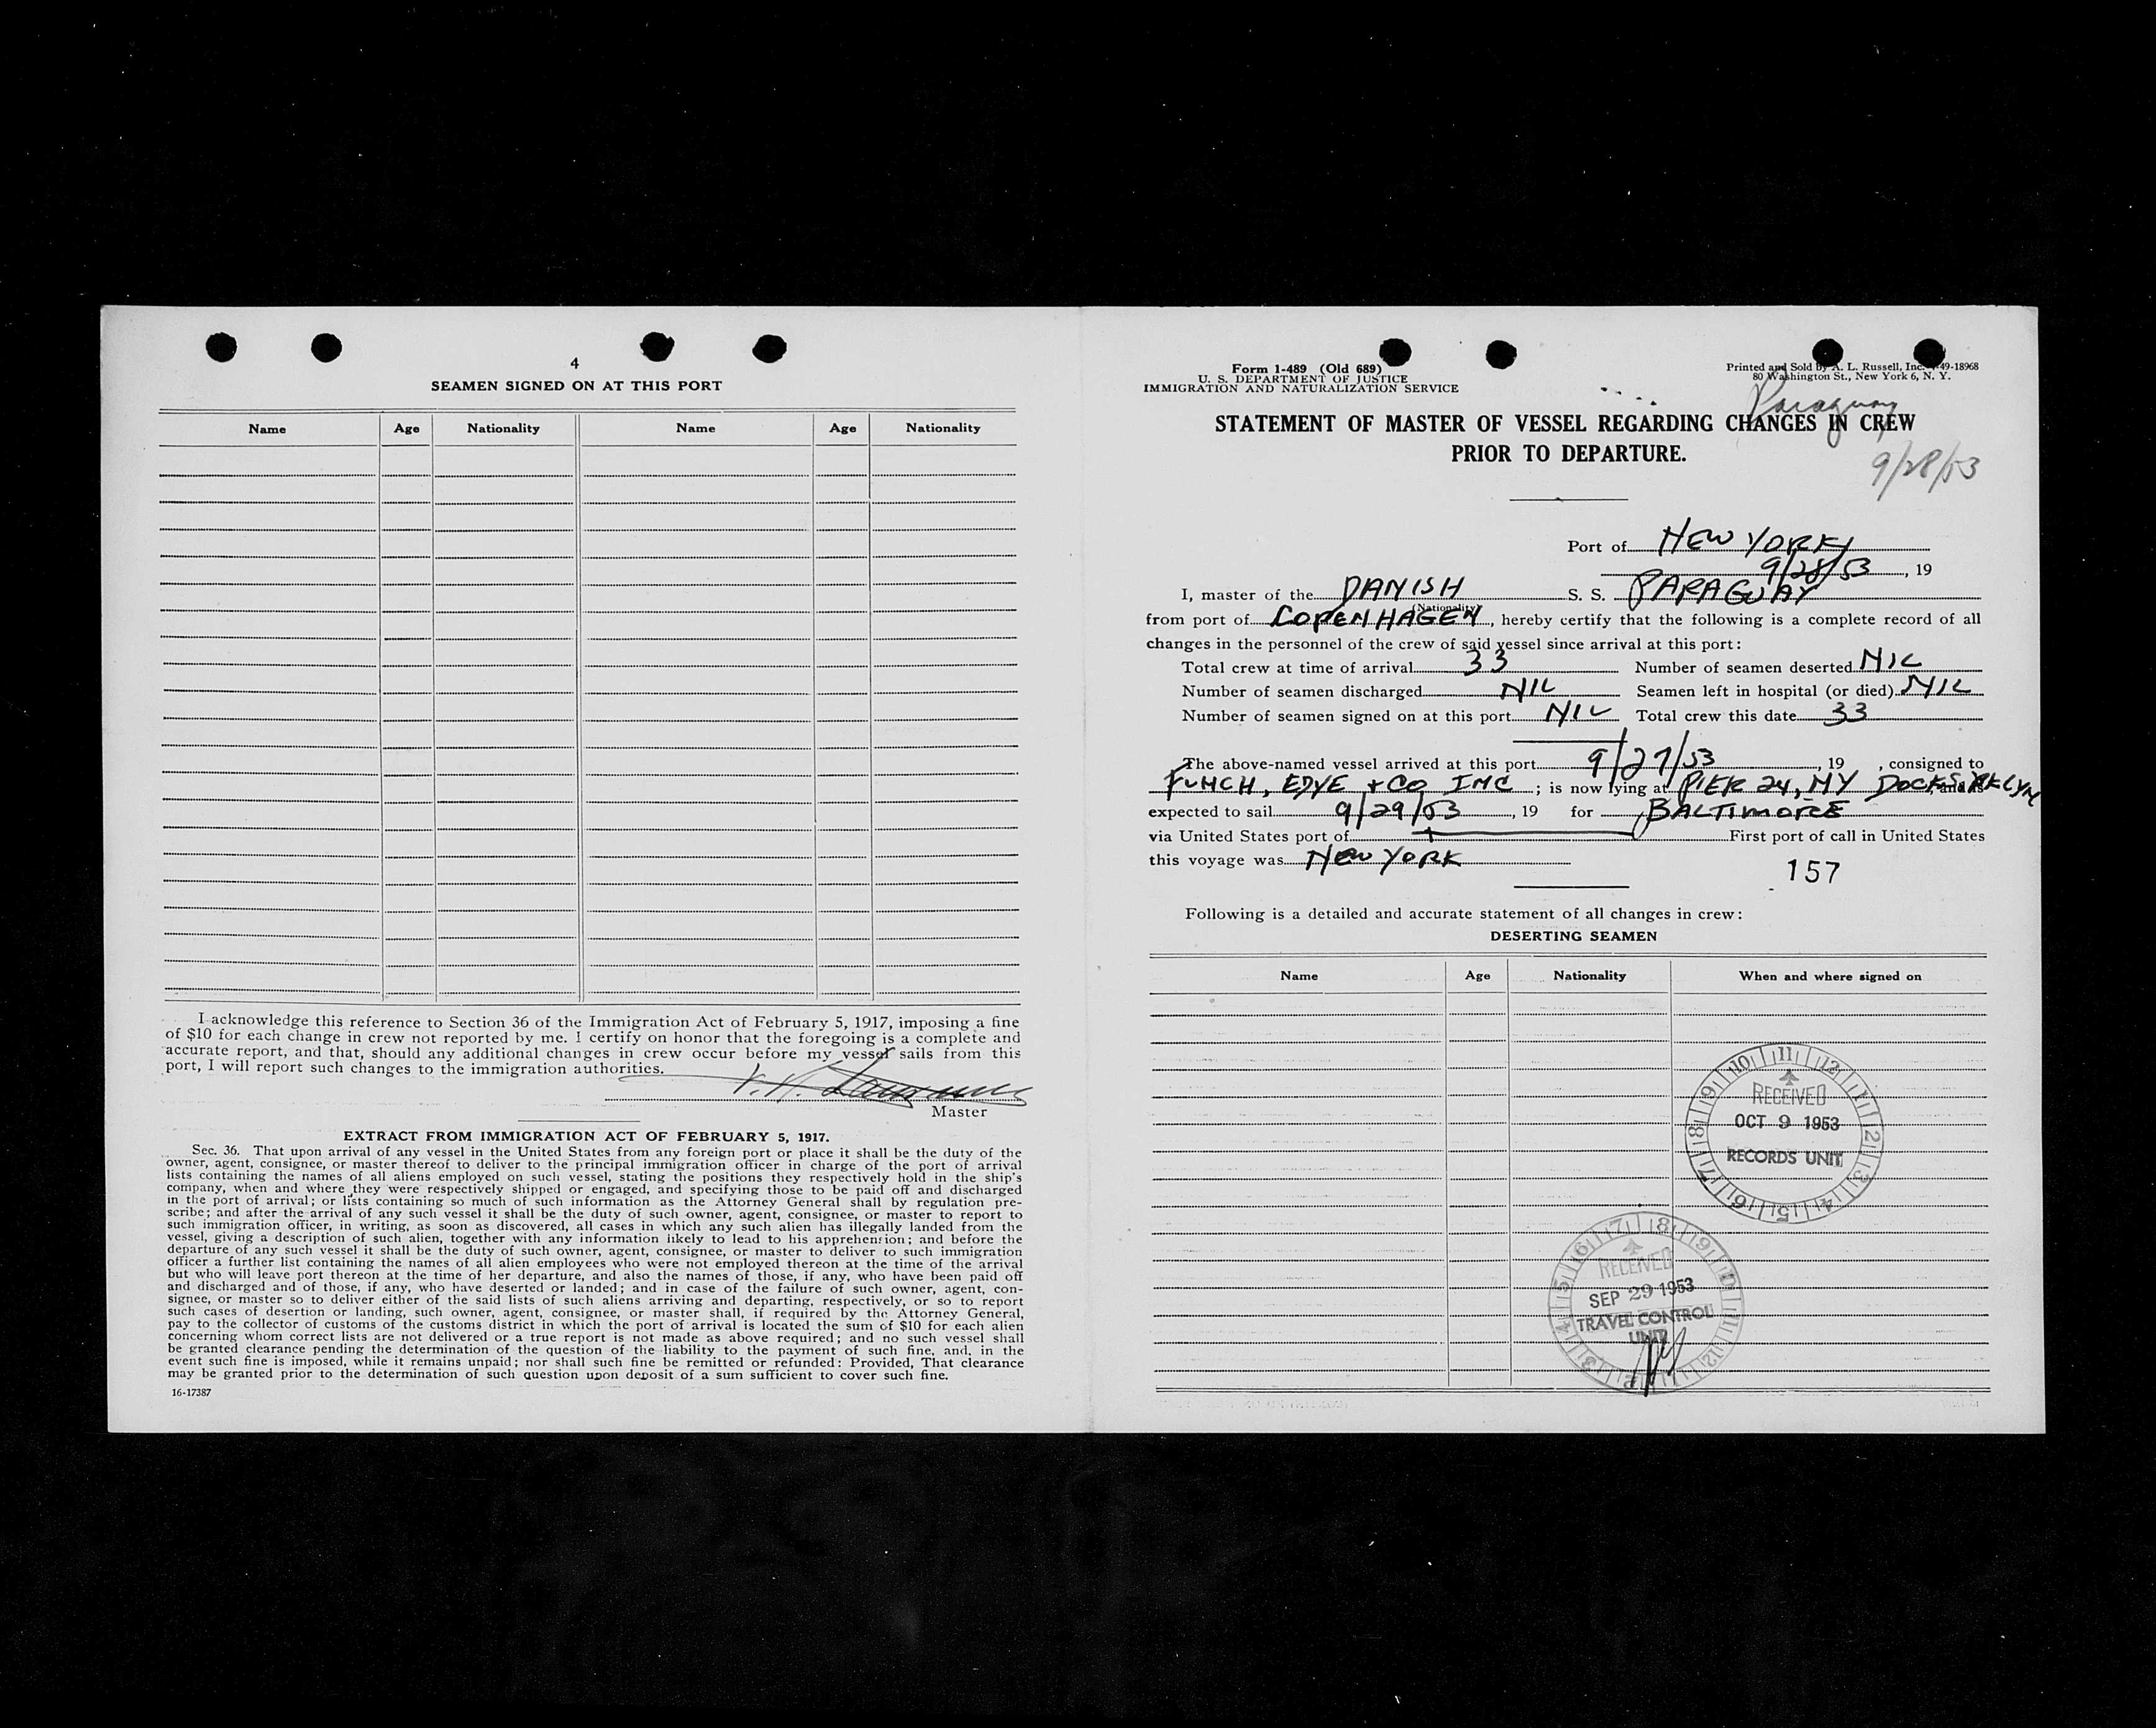 4
SEAMEN SIGNED ON AT THIS PORT
Name Age Nationality Name Age Nationality
I acknowledge this reference to Section 36 of the Immigration Act of February 5, 1917, imposing a fine
of $10 for each change in crew not reported by me. I certify on honor that the foregoing is a complete and
accurate report, and that, should any additional changes in crew occur before my vessel sails from this
port, I will report such changes to the immigration authorities.
Master
EXTRACT FROM IMMIGRATION ACT OF FEBRUARY 5, 1917.
Sec. 36. That upon arrival of any vessel in the United States from any foreign port or place it shall be the duty of the
owner, agent, consignee, or master thereof to deliver to the principal immigration officer in charge of the port of arrival
lists containing the names of all aliens employed on such vessel, stating the positions they respectively hold in the ship's
company, when and where they were respectively shipped or engaged, and specifying those to be paid off and discharged
in the port of arrival; or lists containing so much of such information as the Attorney General shall by regulation pre-
scribe; and after the arrival of any such vessel it shall be the duty of such owner, agent, consignee, or master to report to
such immigration officer, in writing, as soon as discovered, all cases in which any such alien has illegally landed from the
vessel, giving a description of such alien, together with any information likely to lead to his apprehension; and before the
departure of any such vessel it shall be the duty of such owner, agent, consignee, or master to deliver to such immigration
officer a further list containing the names of all alien employees who were not employed thereon at the time of the arrival
but who will leave port thereon at the time of her departure, and also the names of those, if any, who have been paid off
and discharged and of those, if any, who have deserted or landed; and in case of the failure of such owner, agent, con-
signee, or master so to deliver either of the said lists of such aliens arriving and departing, respectively, or so to report
such cases of desertion or landing, such owner, agent, consignee, or master shall, if required by the Attorney General,
pay to the collector of customs of the customs district in which the port of arrival is located the sum of $10 for each alien
concerning whom correct lists are not delivered or a true report is not made as above required; and no such vessel shall
be granted clearance pending the determination of the question of the liability to the payment of such fine, and, in the
event such fine is imposed, while it remains unpaid; nor shall such fine be remitted or refunded: Provided, That clearance
may be granted prior to the determination of such question upon deposit of a sum sufficient to cover such fine.
16-17387
Form 1-489 (Old 689)
U. S. DEPARTMENT OF JUSTICE
IMMIGRATION AND NATURALIZATION SERVICE
Printed and Sold by A. L. Russell, Inc. 49-18968
80 Washington St., New York 6, N. Y.
Paraguay
STATEMENT OF MASTER OF VESSEL REGARDING CHANGES IN CREW
PRIOR TO DEPARTURE.
9/28/53
Port of NEW YORK
9/28/53, 19
I, master of the DANISH S. S. PARAGUAY
(Nationality)
from port of COPENHAGEN, hereby certify that the following is a complete record of all
changes in the personnel of the crew of said vessel since arrival at this port:
Total crew at time of arrival 33 Number of seamen deserted NIL
Number of seamen discharged NIL Seamen left in hospital (or died) NIL
Number of seamen signed on at this port NIL Total crew this date 33
The above-named vessel arrived at this port 9/27/53, 19 , consigned to
FUNCH, EDYE + CO INC ; is now lying at PIER 24, NY DOCKS, BKLYN and is
expected to sail 9/29/53, 19 for BALTIMORE
via United States port of First port of call in United States
this voyage was NEW YORK
157
Following is a detailed and accurate statement of all changes in crew:
DESERTING SEAMEN
Name Age Nationality When and where signed on
10 11 12 1 2 3 4 5 6 7 8 9
RECEIVED
OCT 9 1953
RECORDS UNIT
7 8 9 10 11 12 1 2 3 4 5 6
RECEIVED
SEP 29 1953
TRAVEL CONTROL
UNIT